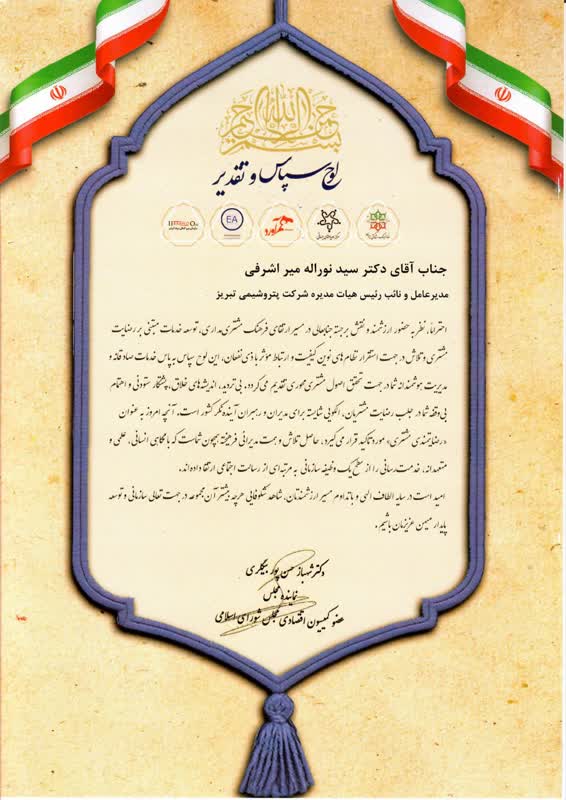 بسم الله الرحمن الرحیم
لوح سپاس و تقدیر
EA
جناب آقای دکتر سید نوراله میر اشرفی
مدیرعامل و نائب رئیس هیات مدیره شرکت پتروشیمی تبریز
احتراماً، نظر به حضور ارزشمند و نقش برجسته جنابعالی در مسیر ارتقای فرهنگ مشتری‌مداری، توسعه خدمات مبتنی بر رضایت
مشتری و تلاش در جهت استقرار نظام‌های نوین کیفیت و ارتباط موثر با ذی‌نفعان، این لوح سپاس به پاس خدمات صادقانه و
مدیریت هوشمندانه شما در جهت تحقق اصول مشتری‌محوری تقدیم می‌گردد. بی‌تردید، اندیشه‌های خلاق، پشتکار ستودنی و اهتمام
بی‌وقفه شما در جلب رضایت مشتریان، الگویی شایسته برای مدیران و رهبران آینده‌نگر کشور است. آنچه امروز به عنوان
«رضایتمندی مشتری» مورد تاکید قرار می‌گیرد، حاصل تلاش و همت مدیرانی فرهیخته همچون شماست که با نگاهی انسانی، علمی و
متعهدانه، خدمت‌رسانی را از سطح یک وظیفه سازمانی به مرتبه‌ای از رسالت اجتماعی ارتقا داده‌اند.
امید است در سایه الطاف الهی و با تداوم مسیر ارزشمندتان، شاهد شکوفایی هرچه بیشتر آن مجموعه در جهت تعالی سازمانی و توسعه
پایدار میهن عزیزمان باشیم.
دکتر شهباز حسن پور بیگلری
نماینده مجلس
عضو کمیسیون اقتصادی مجلس شورای اسلامی